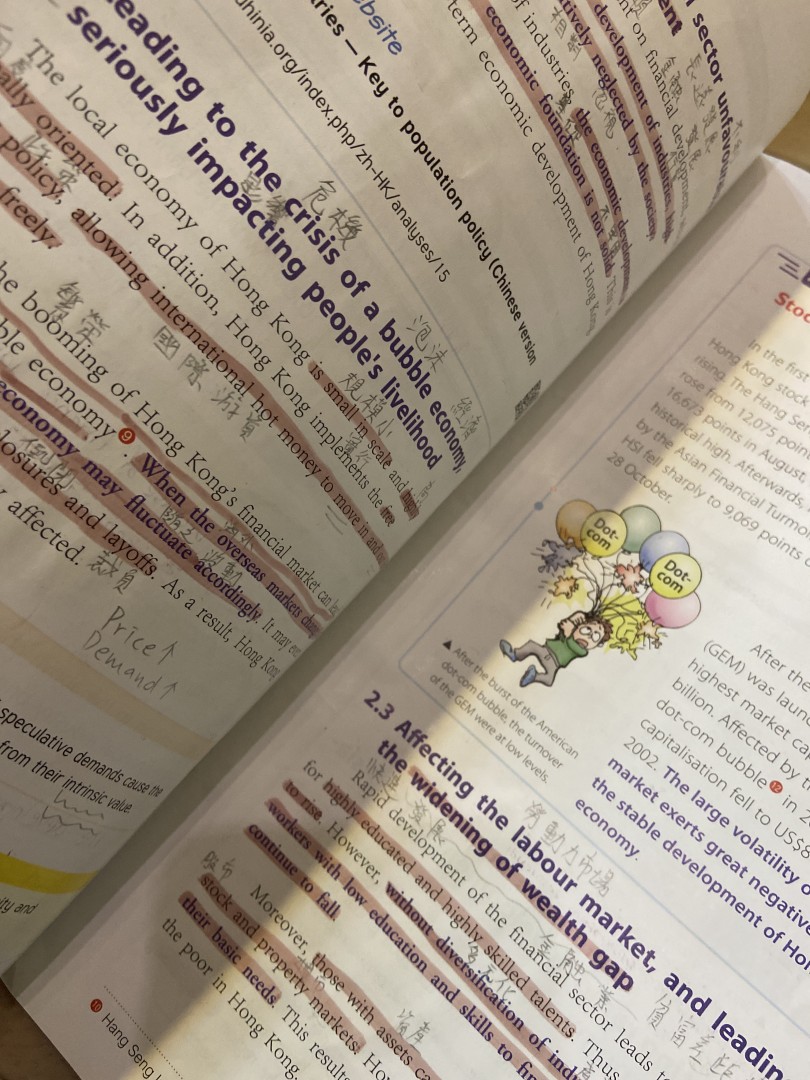 l sector unfavou
ent
nt on financial development,
development of industries
atively neglected by the society.
of industries, the economic development
economic foundation is not solid. This
term economic development of Hong Kong
ebsite
ries — Key to population policy (Chinese version
dhinia.org/index.php/zh-HK/analyses/15
leading to the crisis of a bubble economy,
seriously impacting people's livelihood
危機
影響
泡沫
經濟
The local economy of Hong Kong is small in scale and
規模小
ally oriented! In addition, Hong Kong implements the free
policy, allowing international hot money to move in and
freely.
國際游資
繁榮
he booming of Hong Kong's financial market can
ble economy ❾. When the overseas markets
economy may fluctuate accordingly. It may
波動
倒閉
losures and layoffs. As a result, Hong Kong
裁員
affected.
Price↑
Demand↑
speculative demands cause the
from their intrinsic value.
ity and
Stoc
In the first
Hong Kong stock
rising. The Hang Sen
rose from 12,075 point
16,673 points in August
historical high. Afterwards,
by the Asian Financial Turmoi
HSI fell sharply to 9,069 points o
28 October.
Dot-
com
Dot-
com
▲ After the burst of the American
dot-com bubble, the turnover
of the GEM were at low levels.
After the
(GEM) was laun
highest market ca
billion. Affected by
dot-com bubble ⓬ in 2
capitalisation fell to US$8
2002. The large volatility o
market exerts great negative
the stable development of Hon
economy.
2.3 Affecting the labour market, and leadin
the widening of wealth gap
勞動力市場
貧富差距
發展
金融業
Rapid development of the financial sector leads to
for highly educated and highly skilled talents. Thus
to rise. However, without diversification of ind
多元化
workers with low education and skills to fin
continue to fall.
股市
資產
Moreover, those with assets ca
stock and property markets! Ho
their basic needs. This result
the poor in Hong Kong.
❿ Hang Seng I